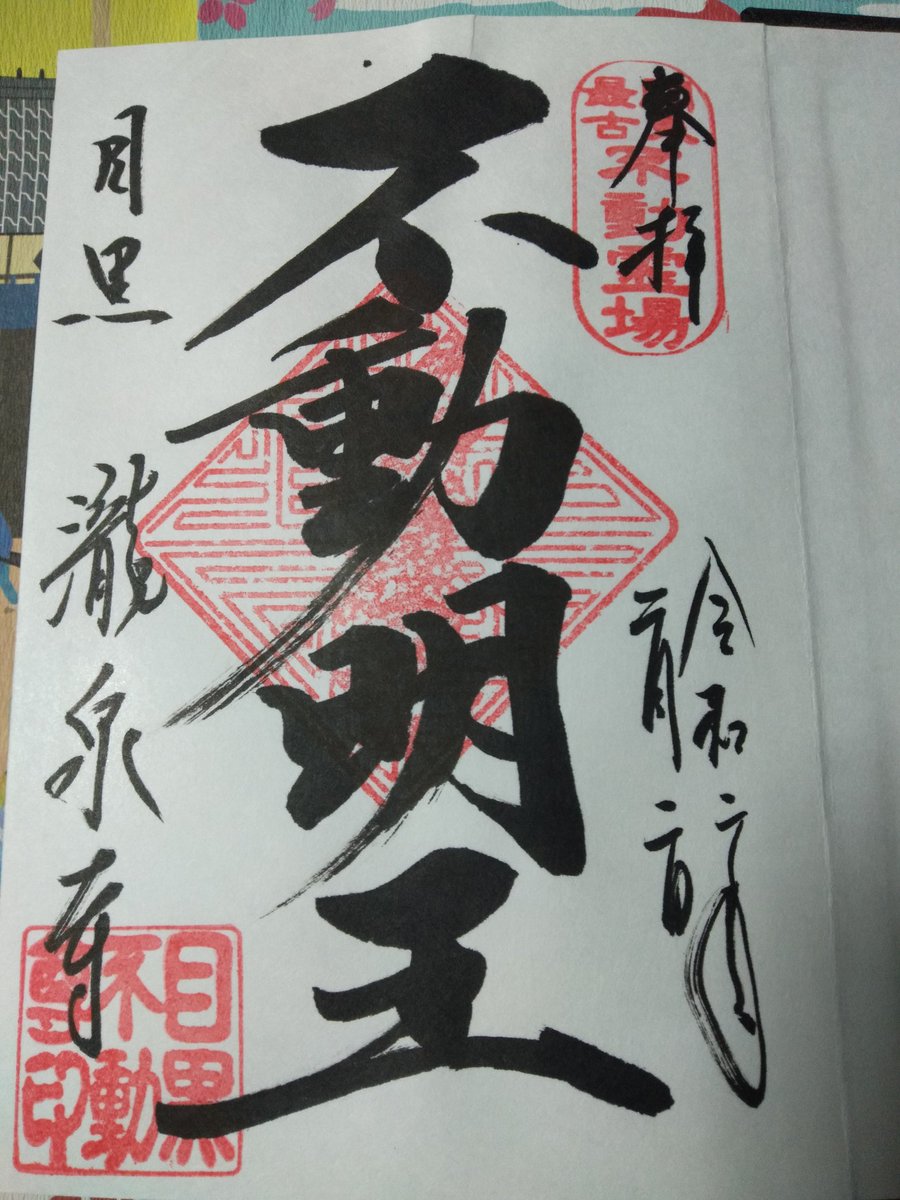 奉拝
最古
不動霊場
令和二年
二月二日
不動明王
目黒 瀧泉寺
目黒
不動
印